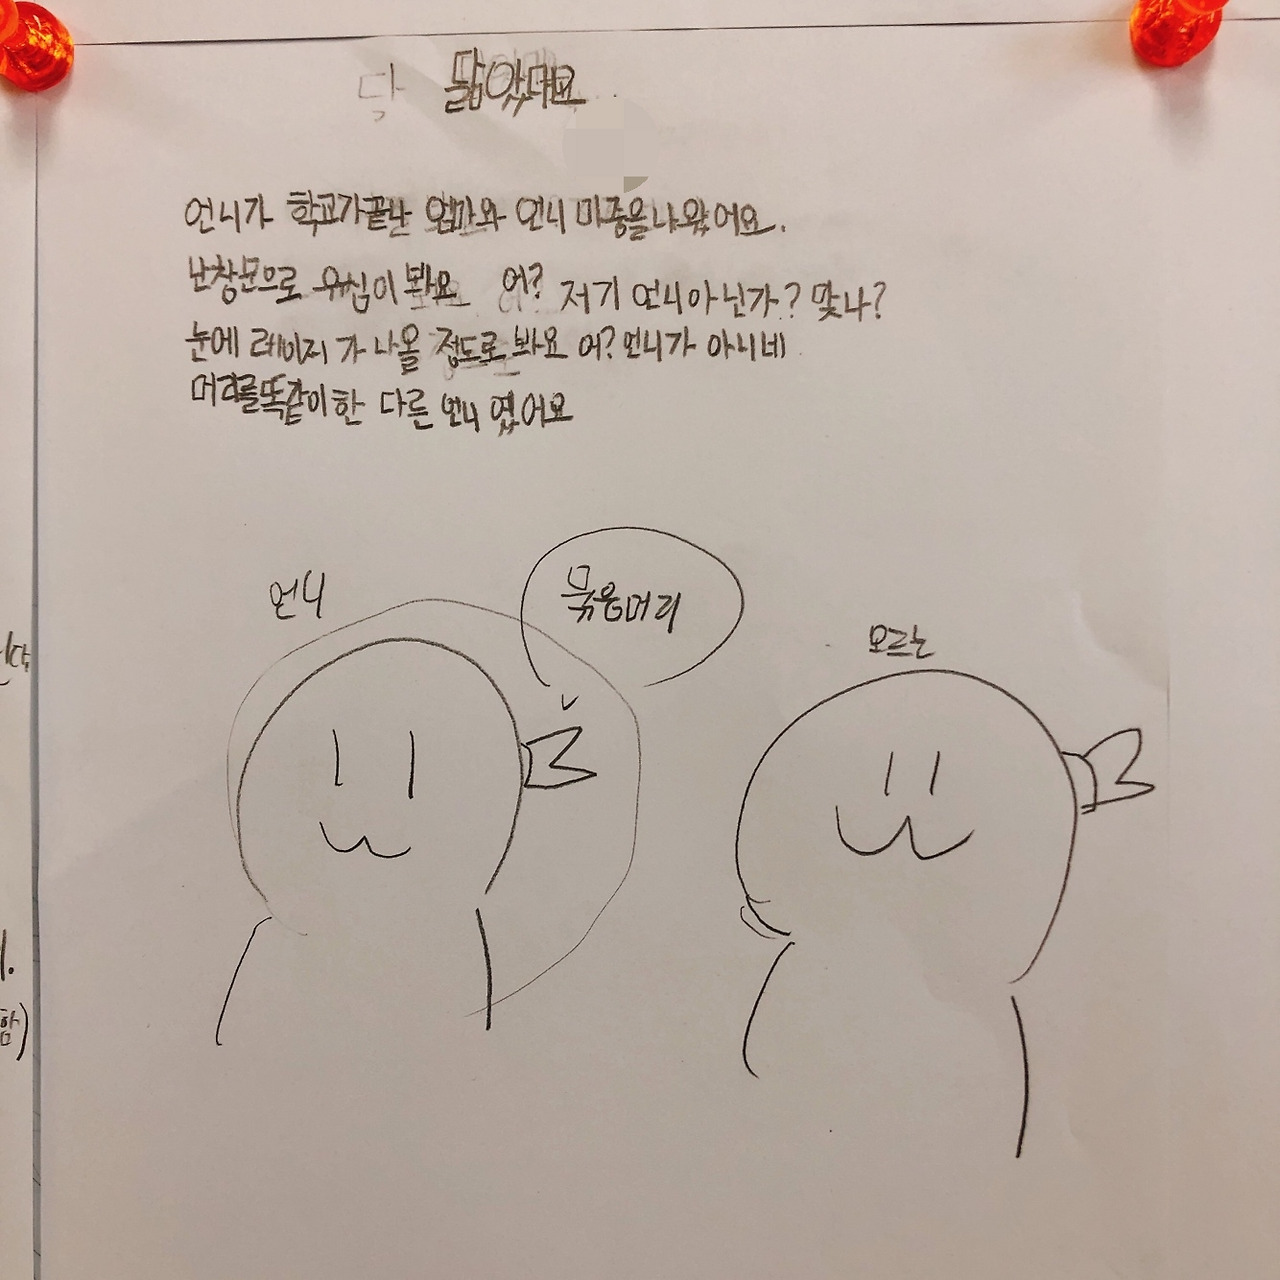 닮았다고
언니가 학교가끝난 엄마와 언니 마중을나왔어요.
난창문으로 유심이 봐요 어? 저기 언니아닌가? 맞나?
눈에 레이저가 나올 정도로 봐요 어? 언니가 아니네
머리를똑같이한 다른 언니 였어요
언니
묶음머리
모르는